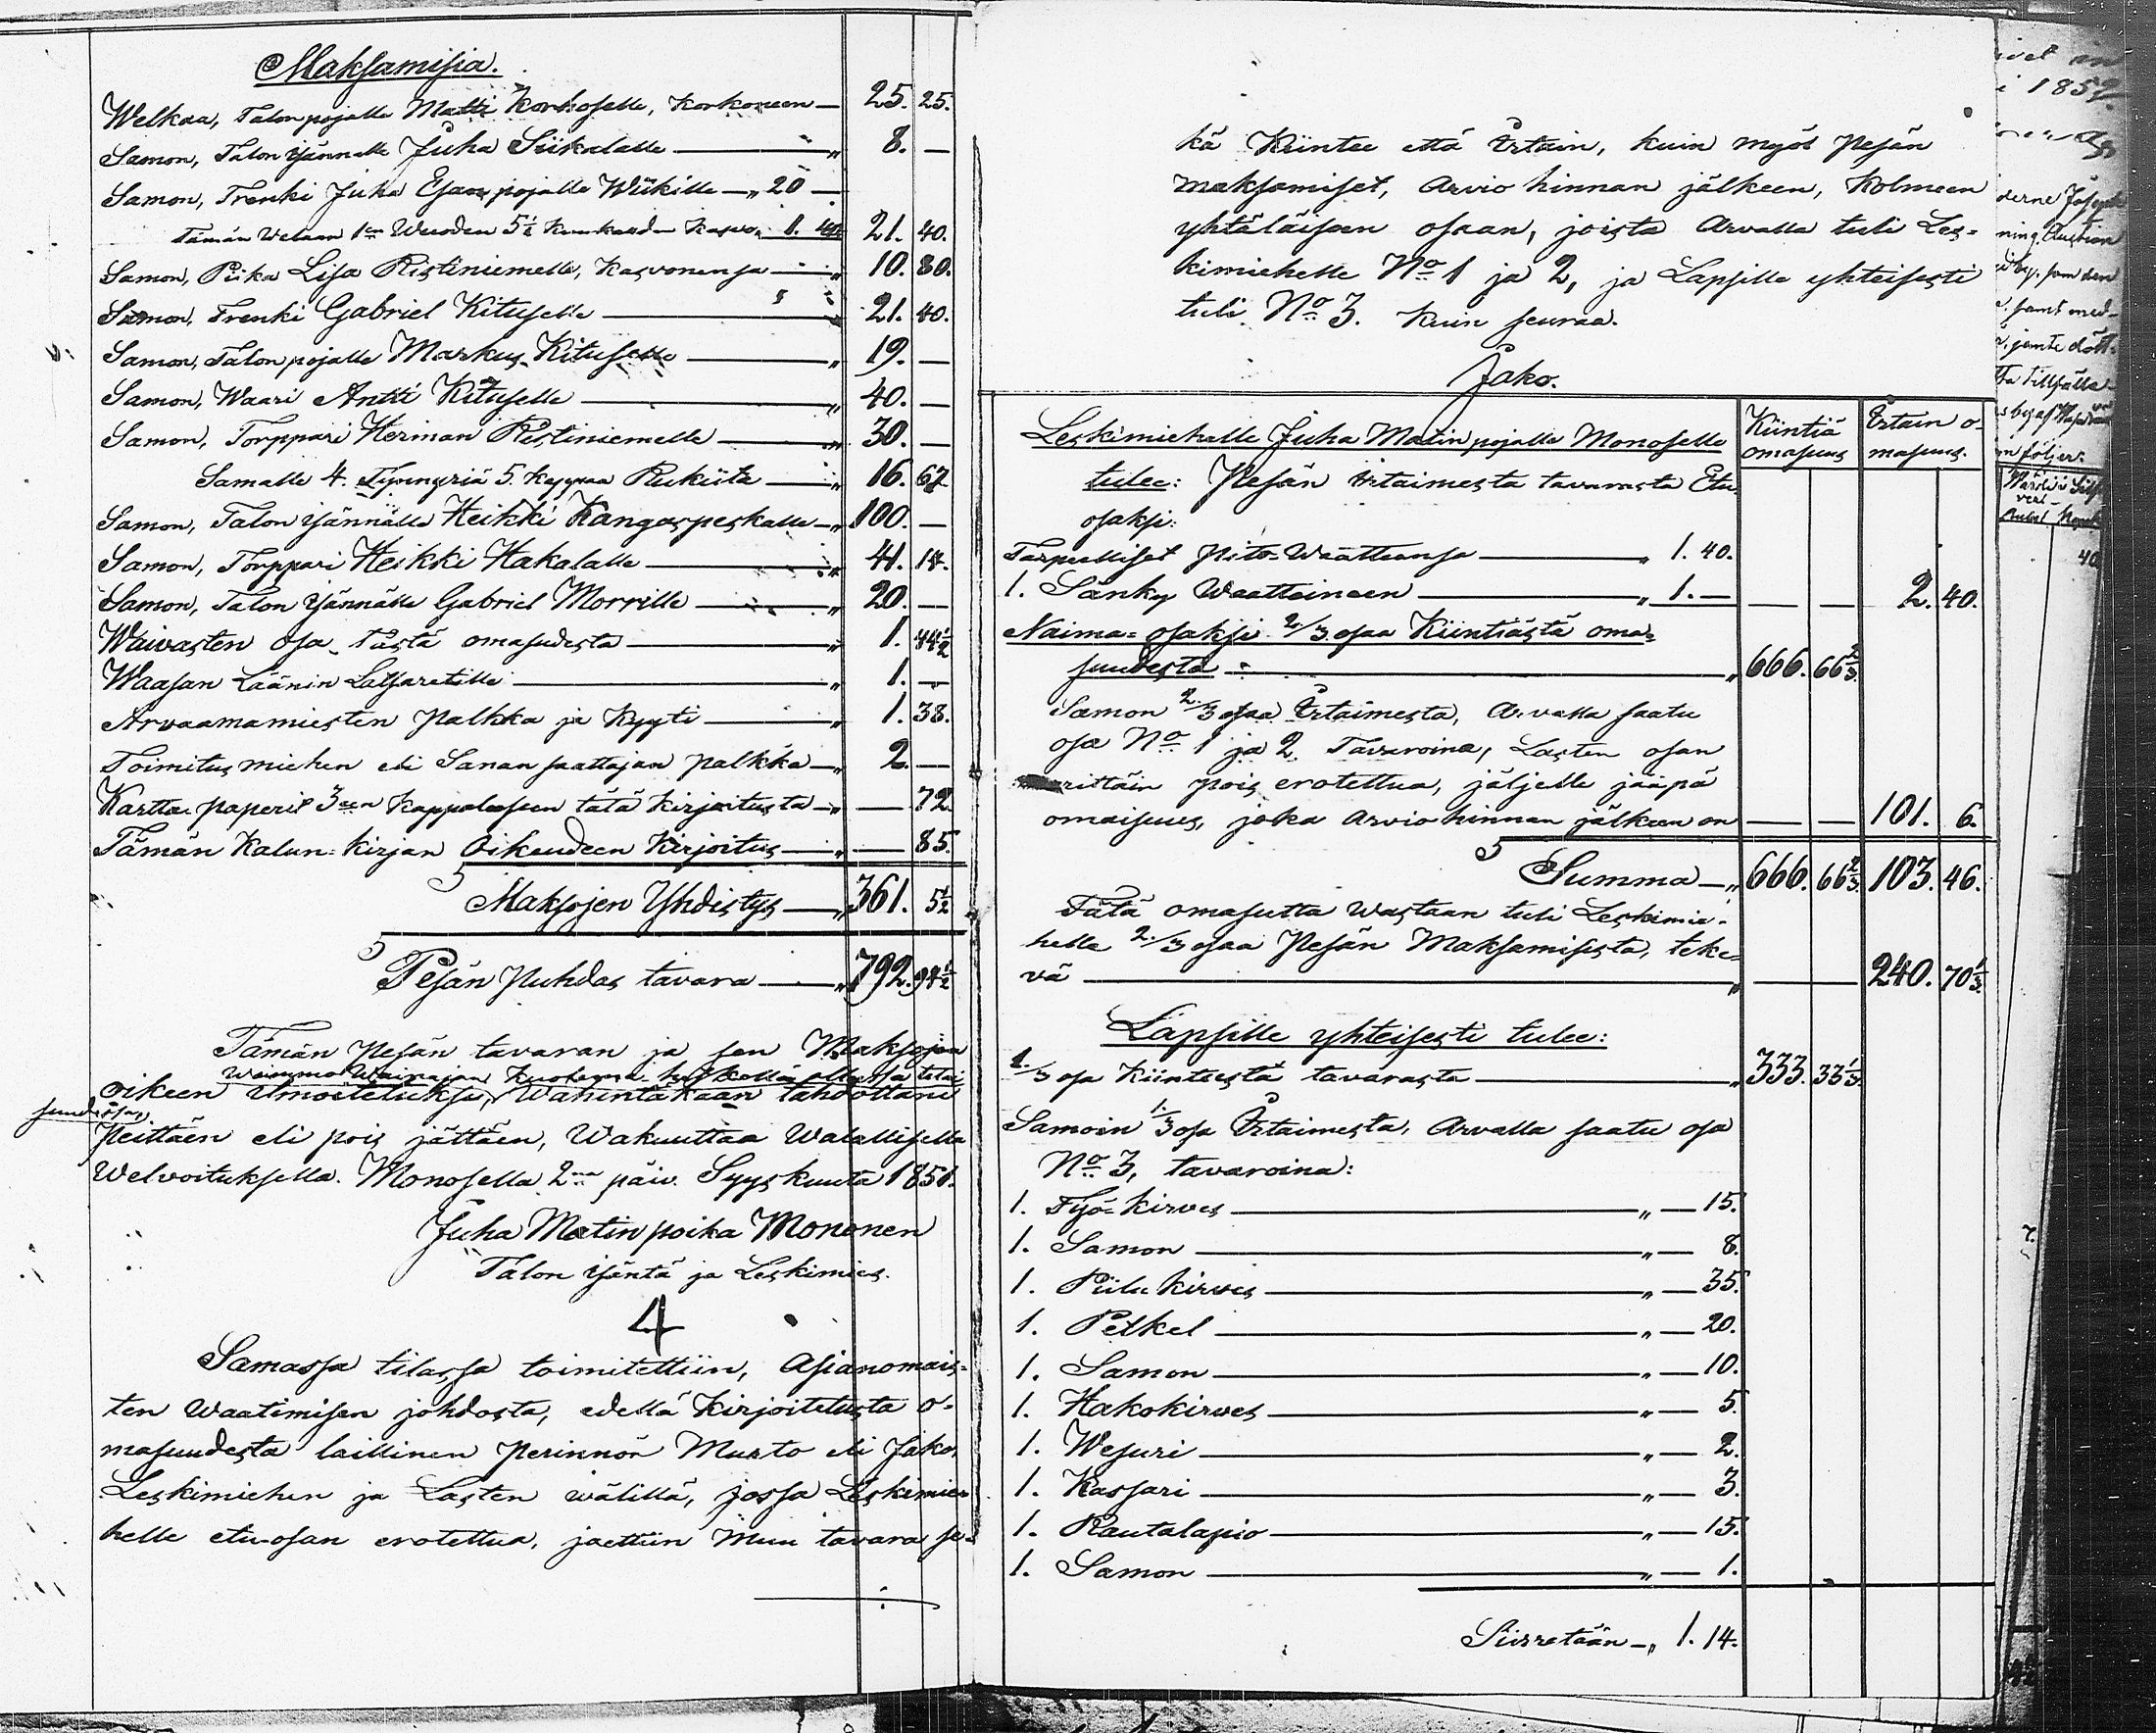 Maksamisia.
Welkaa, Talonpojalle Matti Korhoselle, Korkoneen — 25. 25.
Samon, Talon Isännälle Juha Siikalalle — „ 8. —
Samon, Trenki Juha Esanpojalle Wiikille — „ 20 —
Tämän Welaan 1en Wuoden 5½ Kuukauden Kasvo „ 1. 40. 21. 40.
Samon, Piika Lisa Ristiniemelle, Kasvonensa — „ 10. 80.
Samon, Trenki Gabriel Kituselle — „ 21. 40.
Samon, Talonpojalle Markus Kituselle — „ 19. —
Samon, Waari Antti Kituselle — „ 40. —
Samon, Torppari Herman Ristiniemelle — „ 30. —
Samalle 4. Tynnyriä 5. Kappaa Rukiita — „ 16. 67.
Samon, Talon Isännälle Heikki Kangaspeskalle — „ 100. —
Samon, Torppari Heikki Hakalalle — „ 41. 14.
Samon, Talon Isännälle Gabriel Morrille — „ 20. —
Waivasten Osa tästä omasudesta — „ 1. 44½
Waasan Läänin Latsaretille — „ 1. —
Arvaamamiesten Palkka ja Kyyti — „ 1. 38.
Toimitus miehen eli Sanan saattajan palkka — „ 2. —
Kartta-paperit 3een Kappaleesen tätä Kirjoitusta — „ — 72.
Tämän Kalun-kirjan Oikeudeen Kirjoitus — „ — 85.
Maksojen Yhdistys — „ 361. 5½
Pesän Puhdas tavara — „ 792. 94½
Tämän Pesän tavaran ja sen Maksojen
Waimmo Wainajan Kuolema hetkellä ollessa tilai
oikeen ilmoitetuksi, Wähintäkään tahdottani
suudessan
Peittäen eli pois jättäen, Wakuuttaa Walallisella
Welvoituksella. Monosella 2na päiv. Syyskuuta 1851.
Juha Matin poika Mononen
Talon Isäntä ja Leskimies.
4
Samassa tilassa toimitettiin, Asianomais=
ten Waatimisen johdosta, edellä Kirjoitetusta o=
masuudesta laillinen Perinnön Murto eli Jako,
Leskimiehen ja Lasten wälillä, jossa Leskimie=
helle etu-osan erotettua, jaettiin Muu tavara se=
kä Kiintee että Irtain, kuin myös Pesän
maksamiset, Arvio hinnan jälkeen, Kolmeen
yhtäläiseen osaan, joista Arvalla tuli Les=
kimiehelle No 1 ja 2, ja Lapsille yhteisesti
tuli No 3. Kuin seuraa.
Jako.
Leskimiehelle Juha Matinpojalle Monoselle
Kiintiä omasuus
Irtain o=
masuus.
tulee: Pesän Irtaimesta tavarasta Etu
osaksi:
Tarpeelliset Pito-Waatteensa — „ 1. 40.
1. Sänky Waatteineen — „ 1. — — — 2. 40.
Naima=osaksi 2/3 osaa Kiintiästä oma=
suudesta — „ 666. 66⅔
Samon 2/3 osaa Irtaimesta, Arvalla saatu
osa No 1 ja 2 Tavaroina, Lasten osan
rittäin pois erotettua, jäljelle jääpä
omaisuus, joka Arvio hinnan jälkeen on — — 101. 6.
Summa — „ 666. 66⅔ 103. 46.
Tätä omasutta Wastaan tuli Leskimie=
helle 2/3 osaa Pesän Maksamisista, teke=
vä — „ — — 240. 70⅓
Lapsille yhteisesti tulee:
1/3 osa Kiinteestä tavarasta — „ 333. 33⅓
Samoin 1/3 osa Irtaimesta, Arvalla saatu osa
No 3, tavaroina:
1. Työ-kirves — „ — 15.
1. Samon — „ — 8.
1. Piilu Kirves — „ — 35.
1. Petkel — „ — 20.
1. Samon — „ — 10.
1. Hakokirves — „ — 5.
1. Wesuri — „ — 2.
1. Kassari — „ — 3.
1. Rautalapio — „ — 15.
1. Samon — „ — 1.
Siirretään — „ 1. 14.